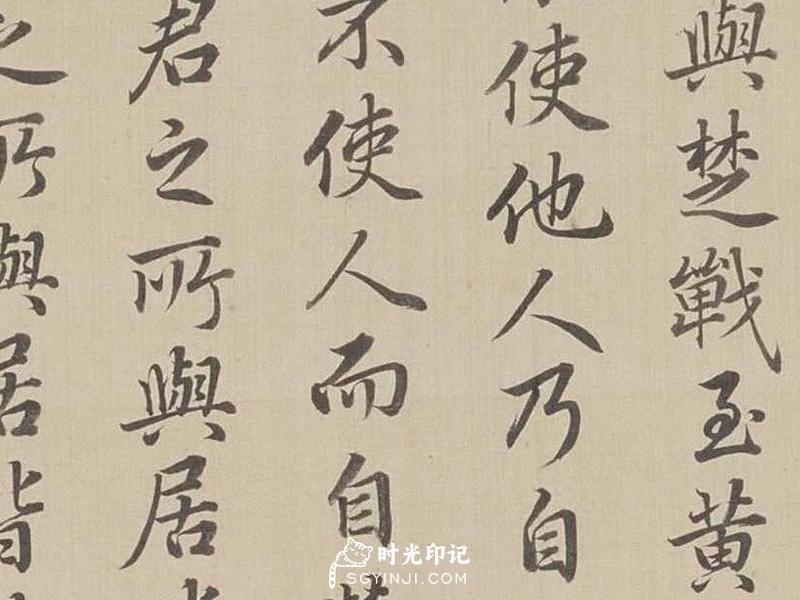 與楚戰至黃
使他人乃自
不使人而自
君之所與居
之所與居皆
时光印记
SGYINJI.COM